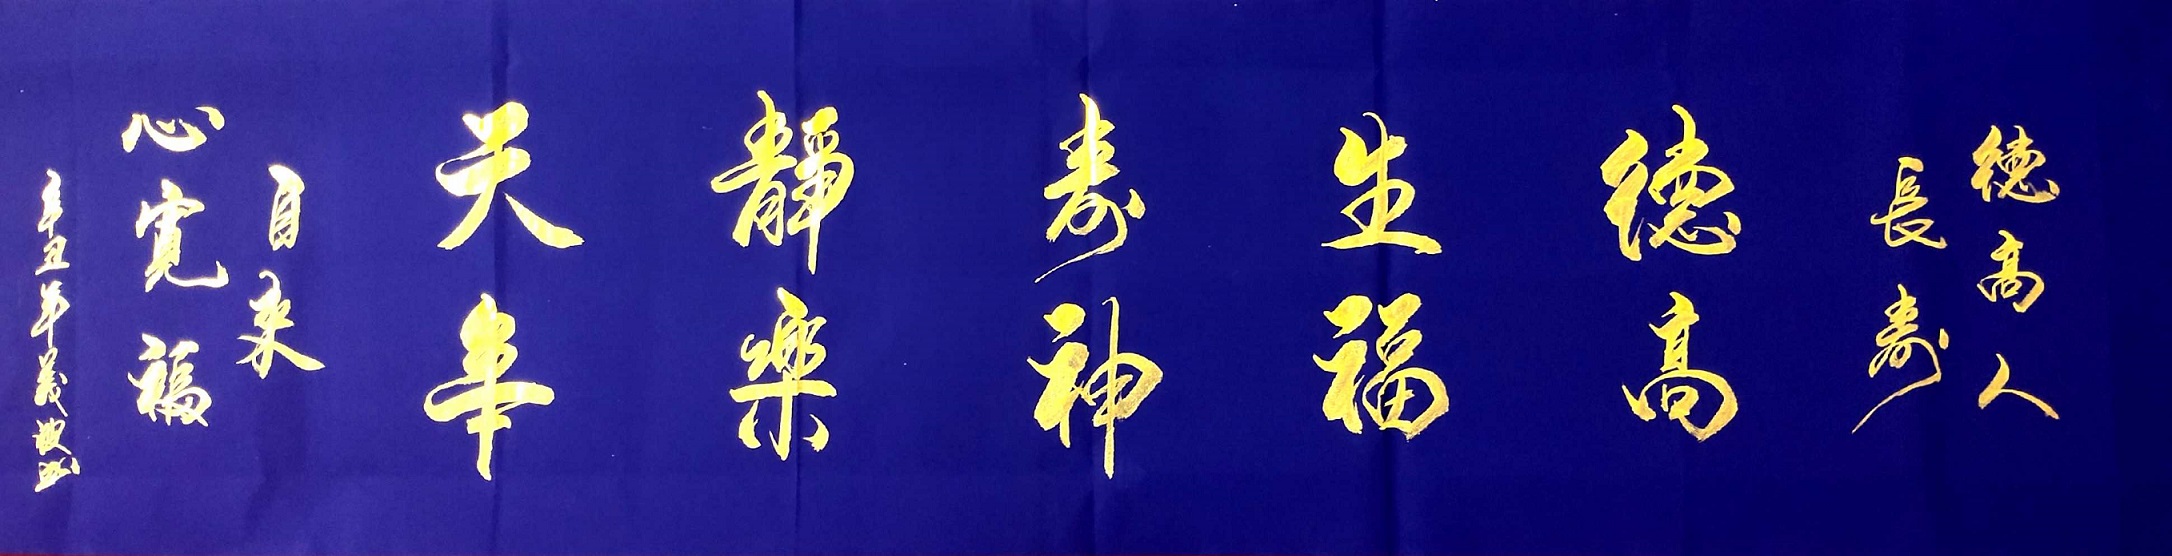 德高人
長壽
德高
生福
壽神
靜樂
天年
自來
心寬福
辛丑年義波書